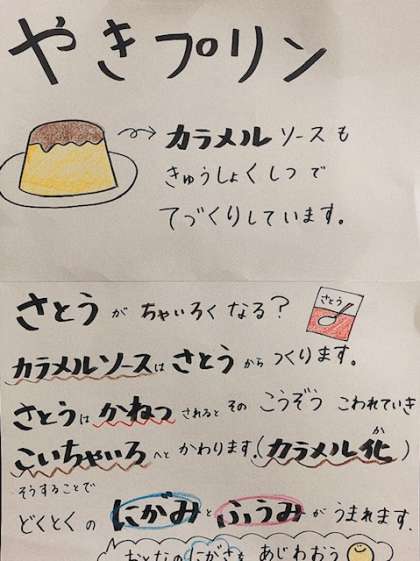 やきプリン
カラメルソースも
きゅうしょくしつで
てづくりしています。
さとうがちゃいろくなる?
さとう
カラメルソースはさとうからつくります。
さとうはかねつされるとそのこうぞうこわれていき
こいちゃいろへとかわります。(カラメル化)
か
そうすることで
どくとくのにがみとふうみがうまれます。
おとなのにがさをあじわおう